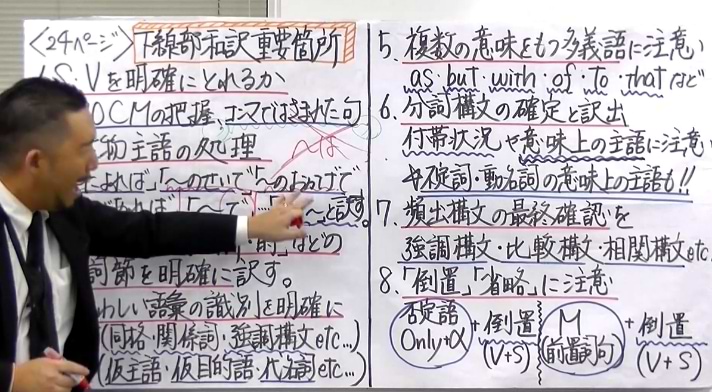 〈24ページ〉下線部和訳重要箇所
S・Vを明確にとれるか
OCMの把握、コンマではさまれた句
物主語の処理
〜は
よれば」「〜のせいで」「〜のおかげで
「〜で」
と訳す。
などの
詞節を明確に訳す。
わしい語彙の識別を明確に
(同格・関係詞・強調構文etc…)
(仮主語・仮目的語・代名詞etc…)
5. 複数の意味をもつ多義語に注意
as・but・with・of・to・thatなど
6. 分詞構文の確定と訳出
付帯状況や意味上の主語に注意
不定詞・動名詞の意味上の主語も!!
7. 頻出構文の最終確認を
強調構文・比較構文・相関構文etc
8. 「倒置」「省略」に注意
否定語 Only+α + 倒置 (V+S)
M (前置詞句) + 倒置 (V+S)